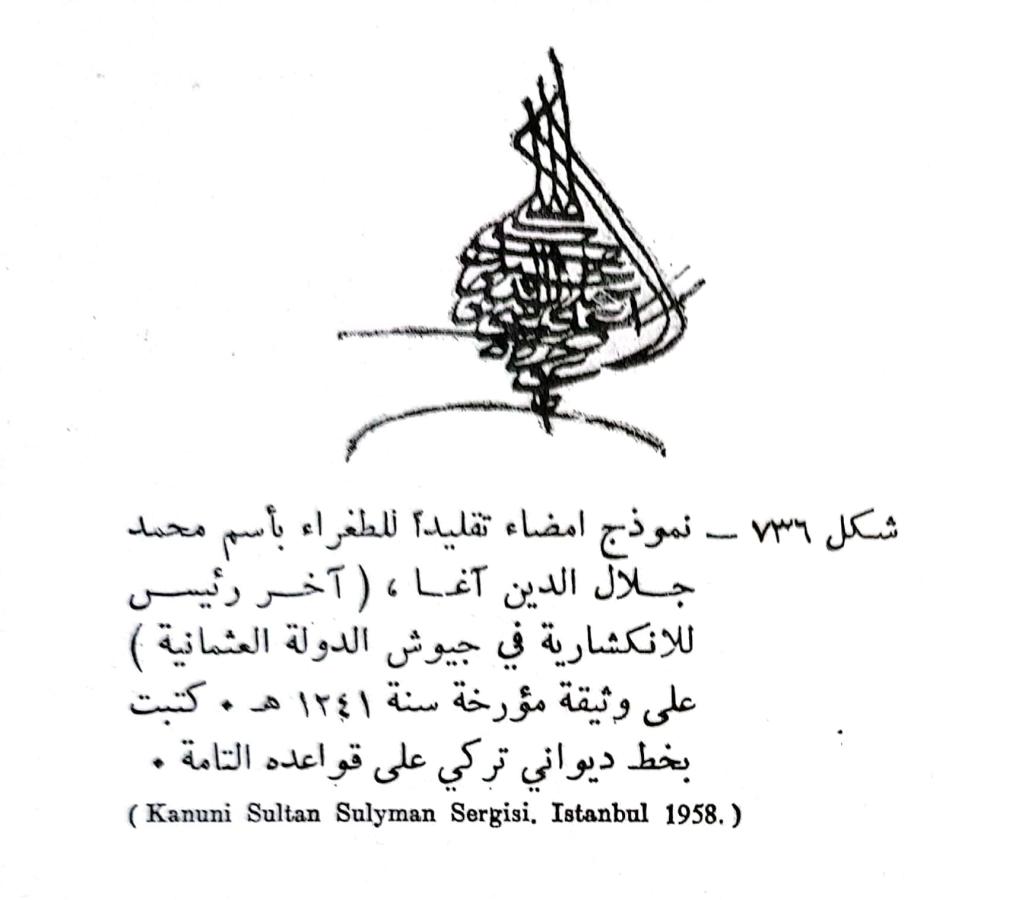 شكل ٧٣٦ ــ نموذج امضاء تقليداً للطغراء بأسم محمد
جــلال الدين آغــا ، ( آخــر رئيــس
للانكشارية في جيوش الدولة العثمانية )
على وثيقة مؤرخة سنة ١٢٤١ هـ . كتبت
بخط ديواني تركي على قواعده التامة .
( Kanuni Sultan Sulyman Sergisi. Istanbul 1958. )